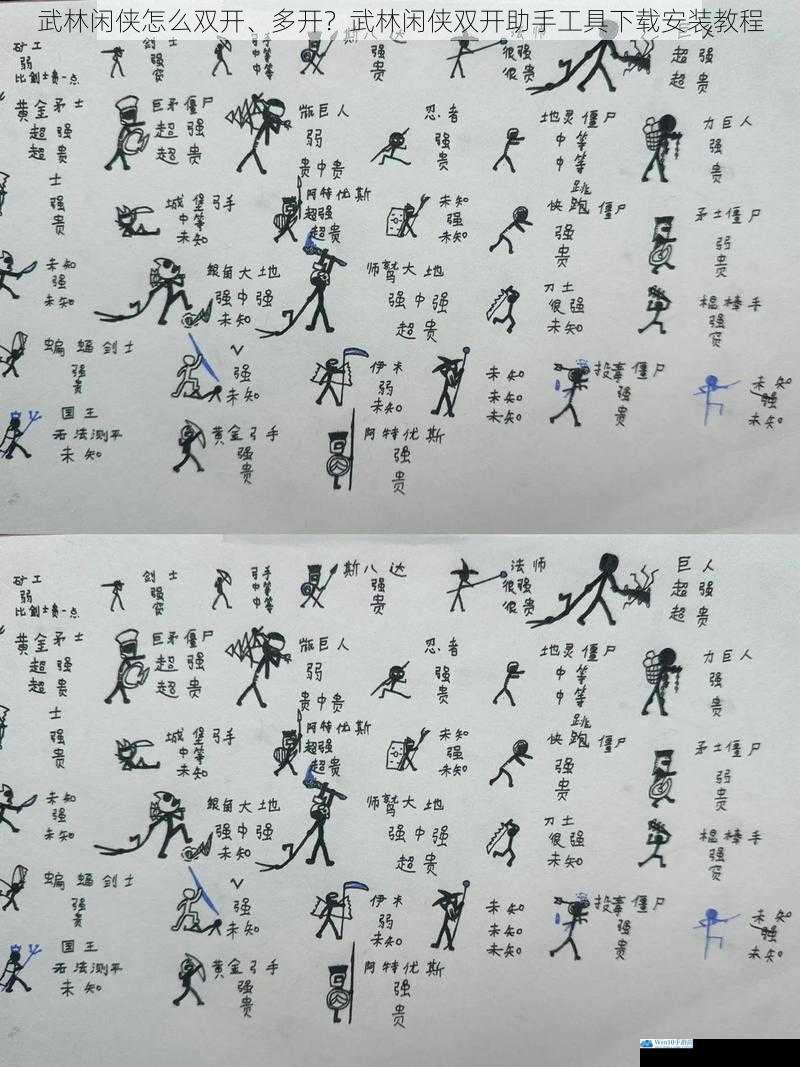 武林闲侠怎么双开、多开？武林闲侠双开助手工具下载安装教程
矿工
弱
比剑士贵一点
强
贵
中等
中等
斯八达
强
贵
法师
很强
很贵
巨人
超强
超贵
黄金矛士
超强
超贵
巨矛僵尸
超强
超贵
巨人
弱
贵中贵
忍者
强
贵
地灵僵尸
中等
中等
力巨人
强
贵
士
强
贵
城堡弓手
中等
未知
阿特优斯
超强
超贵
未知
强
未知
跳
快跑僵尸
强
贵
矛士僵尸
弱
贵
未知
强
未知
银角大地
强中强
未知
师鹫大地
强中强
超贵
刀士
很强
未知
棍棒手
强
贵
蝙蝠剑士
强
贵
V
强
未知
伊木
弱
未知
未知
未知
未知
投毒僵尸
强
贵
未知
强
未知
国王
无法测平
未知
黄金弓手
强
贵
阿特优斯
强
贵
矿工
弱
比剑士贵一点
剑士
强
贵
弓手
中等
中等
斯八达
强
贵
法师
很强
很贵
巨人
超强
超贵
黄金矛士
超强
超贵
巨矛僵尸
超强
超贵
巨人
弱
贵中贵
忍者
强
贵
地灵僵尸
中等
中等
力巨人
强
贵
士
强
贵
城堡弓手
中等
未知
阿特优斯
超强
超贵
未知
强
未知
跳
快跑僵尸
强
贵
矛士僵尸
弱
贵
未知
强
未知
银角大地
强中强
未知
师鹫大地
强中强
超贵
刀士
很强
未知
棍棒手
强
贵
蝙蝠剑士
强
贵
V
强
未知
伊木
弱
未知
未知
未知
未知
投毒僵尸
强
贵
未知
强
未知
国王
无法测平
未知
黄金弓手
强
贵
阿特优斯
强
贵
Win10手游网